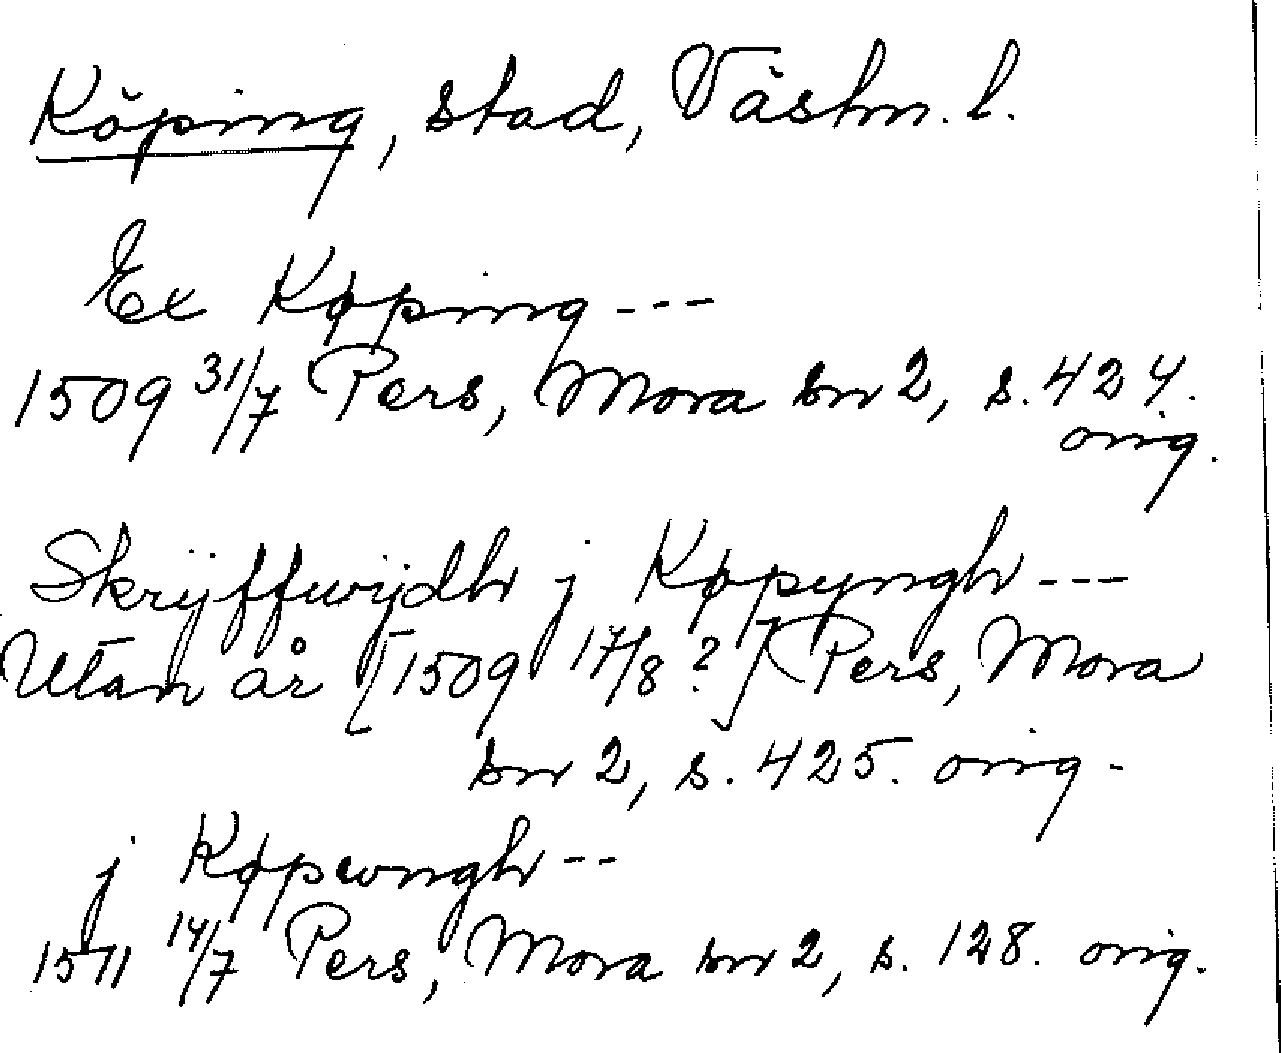 Köping, stad, Västm. l.
Ex Køping ---
1509 31/7 Pers, Mora sn 2, s. 424.
orig.
Skrÿffwijdh j Køpyngh ---
Utan år [1509 17/8 ?] Pers, Mora
sn 2, s. 425. orig.
j Køpwngh --
1511 14/7 Pers, Mora sn 2, s. 128. orig.